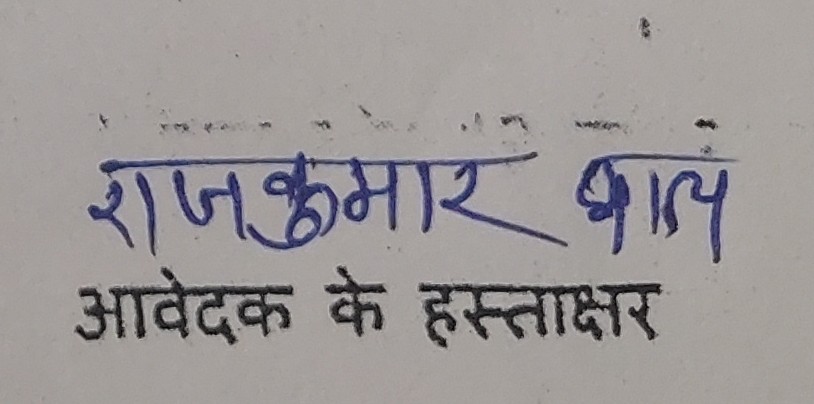 राजकुमार
आवेदक के हस्ताक्षर